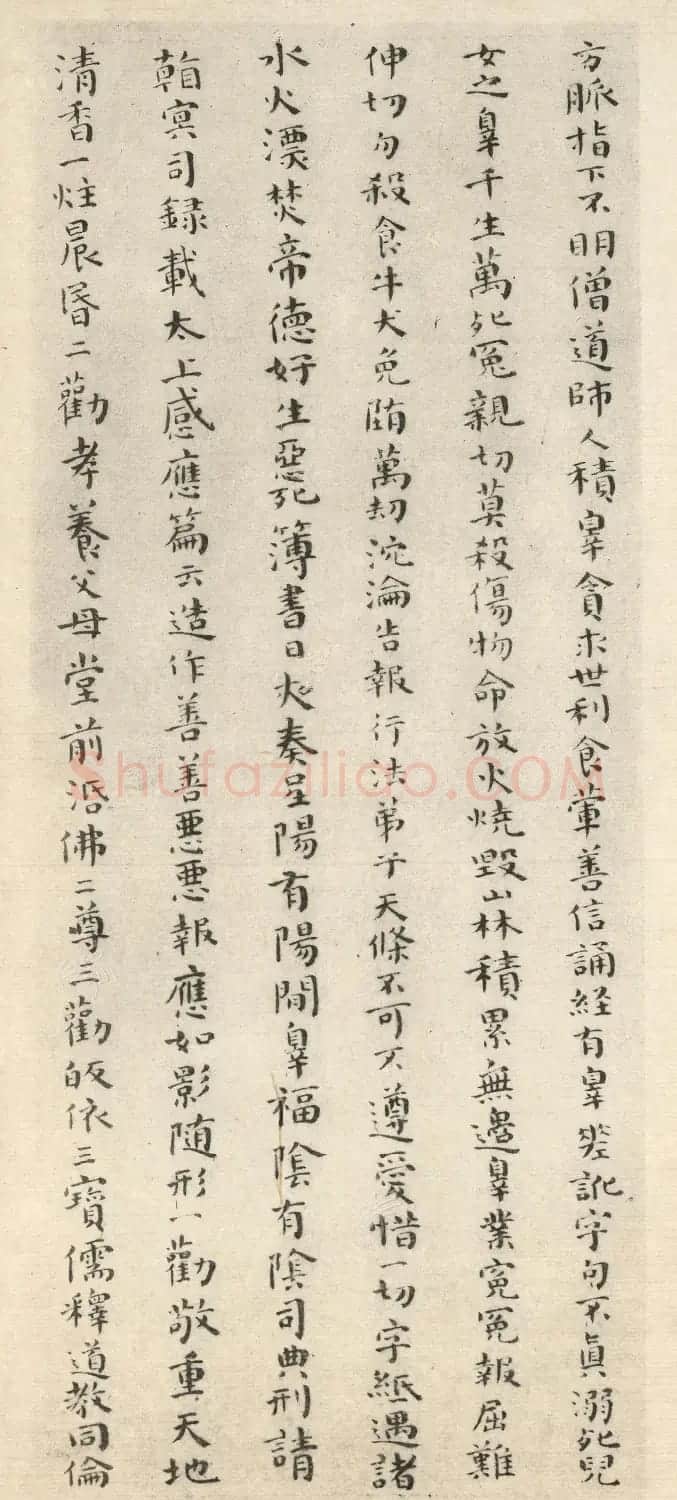 方脈指下不明僧道師人積辠貪求世利食葷善信誦経有辠差訛字句不眞溺死兒
女之辠千生萬死冤親切莫殺傷物命放火燒毀山林積累無邊辠業冤冤報屈難
伸切勿殺食牛犬免墮萬劫沈淪告報行法弟子天條不可不遵愛惜一切字紙遇諸
水火漂焚帝德好生惡死簿書日夜奏呈陽有陽間辠福陰有陰司典刑請
看冥司録載太上感應篇云造作善善悪悪報應如影随形一勸敬重天地
清香一炷晨昏二勸孝養父母堂前活佛二尊三勸皈依三寶儒釋道教同倫
Shufaziliao.COM